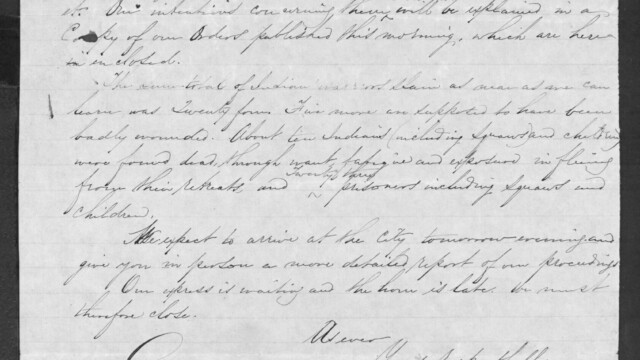 etc. Our intentions concerning them, will be explained in a
Copy of our Orders published this morning, which are here
in enclosed.
The sum total of Indian warriors slain as near as we can
learn was Twenty four. Five more are supposed to have been
badly wounded. About ten Indians (including Squaws and children)
were found dead, through want, fatigue and exposure in fleeing
from their retreats, and Twenty three prisoners including Squaws and
children.
We expect to arrive at the City tomorrow evening and
give you in person a more detailed report of our proceedings.
Our express is waiting and the hour is late. we must
therefore close.
As ever